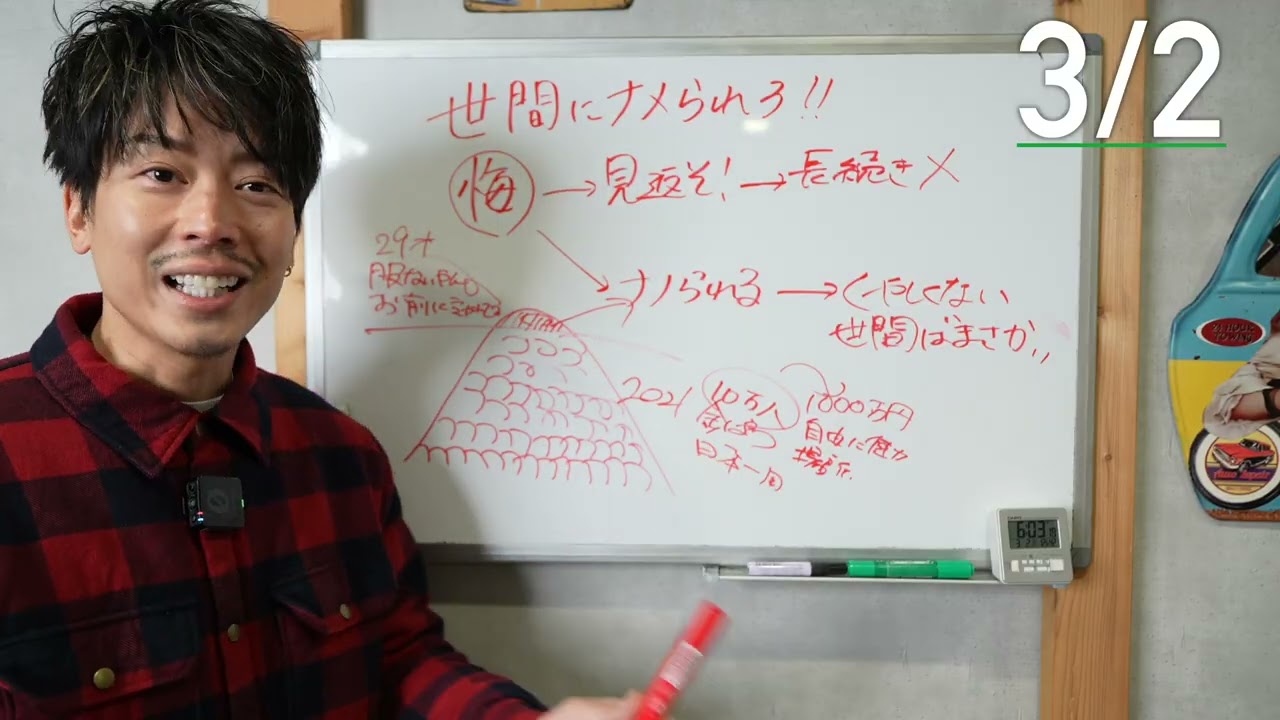 3/2
世間にナメられろ!!
悔 → 見返そ! → 長続き ×
29才
服ない自分
お前に
ナメられる → くやしくない
世間はまさか,,
2021 10万人 1000万円
自由に使カ
日本一周
6:03
24 HOUR
TOWING